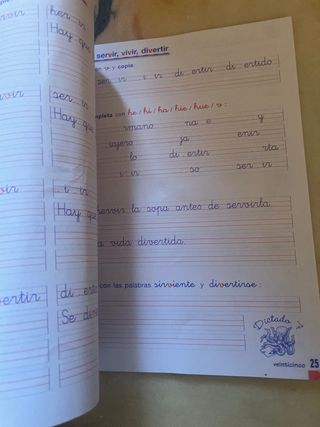 her ir
Hay que
ser ir
Hay que
i ir
Hay que
di erti
Se di
servir, vivir, divertir
con v y copia.
ser ir i ir di ertir di ertido
completa con he / hi / ha / hie / hue / v :
rmano na e y
ujero ja enir
lo di ertir rta
i ir so ser ir
servir la sopa antes de servirla.
a vida divertida.
con las palabras sirviente y divertirse :
Dictado 7
veinticinco 25